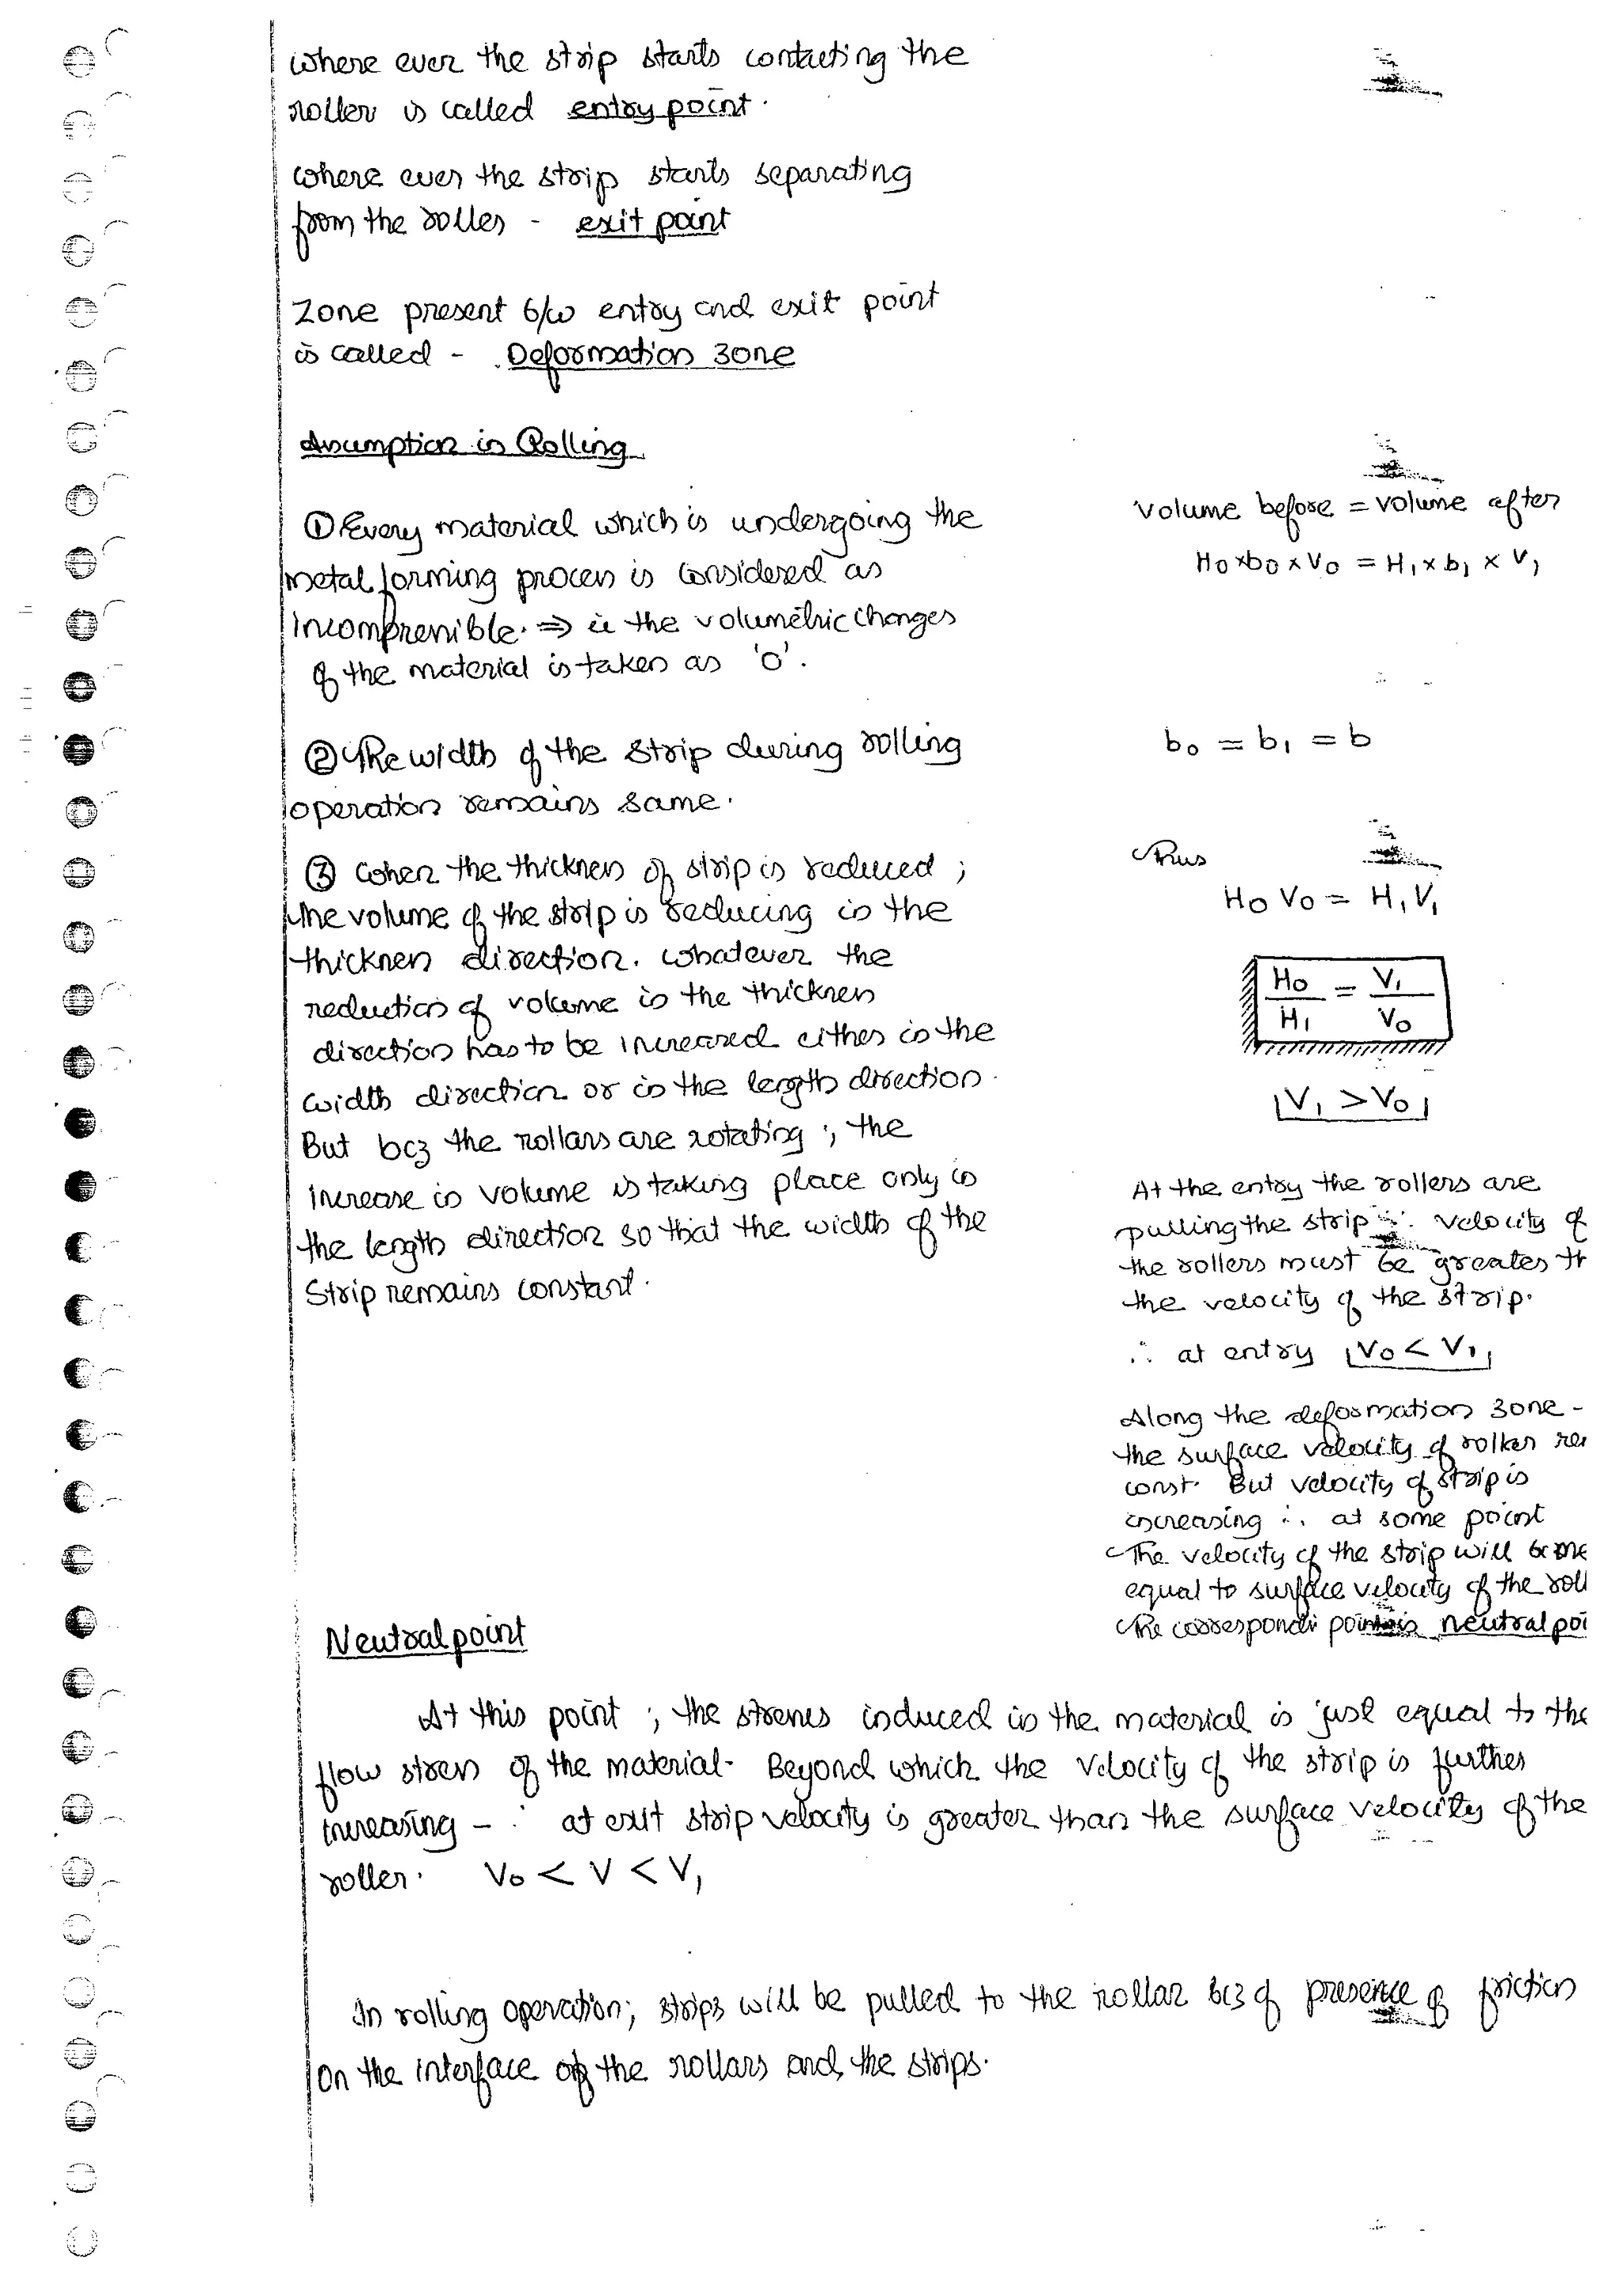 where ever the strip starts contacting the
roller is called entry point.
where ever the strip starts separating
from the roller - exit point
Zone present b/w entry and exit point
is called - Deformation zone
Assumption in Rolling
① Every material which is undergoing the
metal forming process is considered as
incompressible. ⇒ ie the volumetric changes
of the material is taken as 'o'.
volume before = volume after
H₀ x b₀ x V₀ = H₁ x b₁ x V₁
② The width of the strip during rolling
operation remains same.
b₀ = b₁ = b
③ When the thickness of strip is reduced ;
the volume of the strip is reducing in the
thickness direction. Whatever the
reduction of volume in the thickness
direction has to be increased either in the
width direction or in the length direction.
But bcz the rollars are rotating ; the
increase in volume is taking place only in
the length direction so that the width of the
strip remains constant.
Thus
H₀ V₀ = H₁ V₁
H₀/H₁ = V₁/V₀
V₁ > V₀
At the entry the rollers are
pulling the strip ∴ velocity of
the rollers must be greater th
the velocity of the strip.
∴ at entry V₀ < V₁
Along the deformation zone -
the surface velocity of roller re
const. But velocity of strip is
increasing ∴ at some point
The velocity of the strip will
equal to surface velocity of the roll
The correspondi point is neutral poi
Neutral point
At this point ; the stresses induced in the material is just equal to the
flow stress of the material. Beyond which the velocity of the strip is further
increasing - ∴ at exit strip velocity is greater than the surface velocity of the
roller. V₀ < V < V₁
In rolling operation; strips will be pulled to the rollar bcz of presence of friction
on the interface of the rollars and the strips.